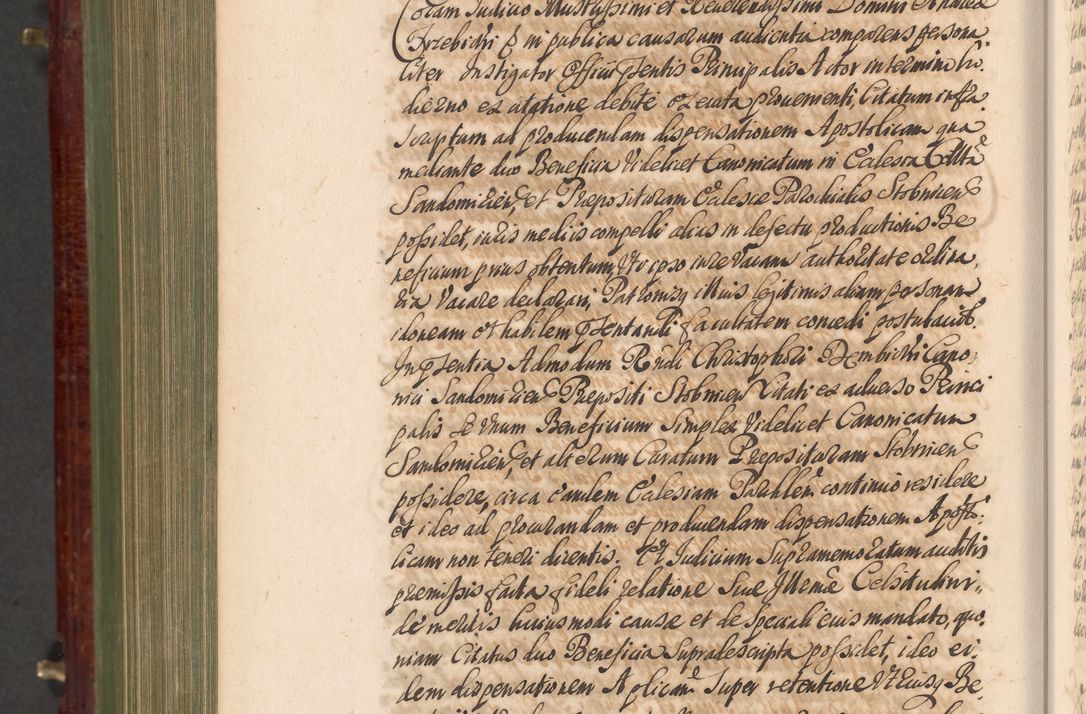 Coram Judicio Illustrissimi et Reverendissimi Domini Andreæ
Trzebicki &c in publica causarum audientia comparens persona
liter Instigator Officii pñtis Principalis Actor in termino ho,
dierno ex citatione debite executa provenienti, Citatum infra
scriptum ad producendam dispensationem Apostolicam qua
mediante duo Beneficia videlicet Canonicatum in Ecclesia Colltã
Sandomirien, et Præposituram Ecclesiæ Parochialis Stobnicen
possidet, iuris mediis compelli alias in defectu productionis Be
neficium prius obtentum, uti ipso iure vacans authoritate ordina,
ria vacare declarari, Patronisq illius legitimis aliam personam
idoneam et habilem pñtandi facultatem concedi postulavit.
In pñtia Admodum Rndi Christophori Dembicki Cano,
nici Sandomirien Præpositi Stobnicen Citati ex adverso Princi
palis se unum Beneficium simplex videlicet Canonicatum
Sandomirien, et alterum Curatum Præposituram Stobnicen
possidere, circa eandem Ecclesiam Parochlem continuo residere
et ideo ad procurandam et producendam dispensationem Aposto,
licam non teneri dicentis. Et Judicium supramemoratum auditis
præmissis facta fideli relatione Suæ Illmæ Celsitudini,
de meritis huiusmodi causæ et de speciali eius mandato, quo,
niam Citatus duo Beneficia supradescripta possidet, ideo ei,
dem dispensationem Aplicam super retentione utriusq Be,